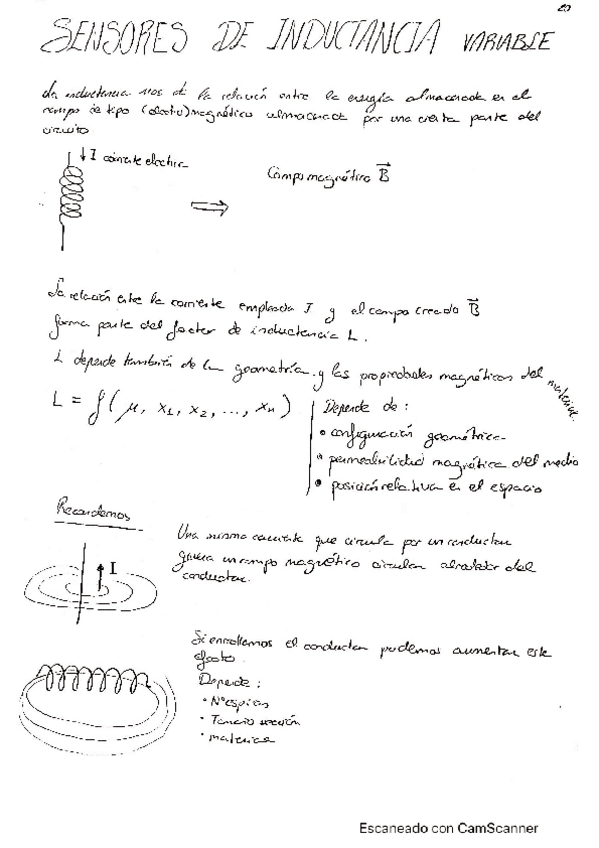 20
SENSORES DE INDUCTANCIA VARIABLE
La inductancia nos da la relación entre la energía almacenada en el
campo de tipo (electro)magnético almacenado por una cierta parte del
circuito
I corriente eléctrica
Campo magnético B⃗
La relación entre la corriente empleada I y el campo creado B⃗
forma parte del factor de inductancia L.
L depende también de la geometría y las propiedades magnéticas del material.
L = f(μ, x₁, x₂, ..., xₙ)
Depende de:
• configuración geométrica
• permeabilidad magnética del medio
• posición relativa en el espacio
Recordemos
I
Una misma corriente que circula por un conductor
genera un campo magnético circular alrededor del
conductor.
Si enrollamos el conductor podemos aumentar este
efecto.
Depende:
• Nº espiras
• Tamaño sección
• material
Escaneado con CamScanner